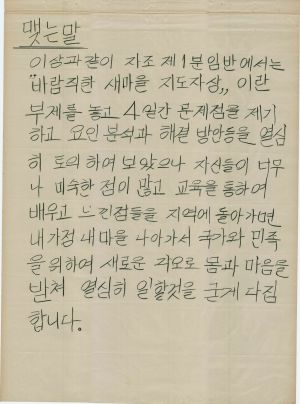 맺는말
이상과 같이 자조 제1분임반에서는
"바람직한 새마을 지도자상„ 이란
부제를 놓고 4일간 문제점을 제기
하고 요인 분석과 해결 방안등을 열심
히 토의 하여 보았으나 자신들이 너무
나 미숙한 점이 많고 교육을 통하여
배우고 느낀점들을 지역에 돌아가면
내가정 내마을 나아가서 국가와 민족
을 위하여 새로운 각오로 몸과 마음을
받쳐 열심히 일할것을 굳게 다짐
합니다.